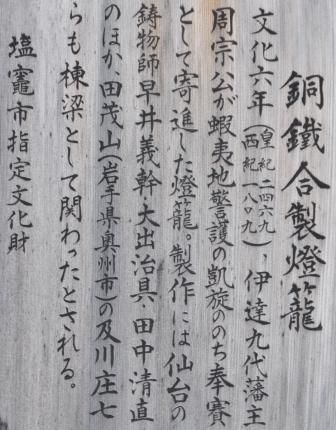 銅鐵合製燈籠
文化六年(皇紀二四六九 西紀一八〇九)、伊達九代藩主
周宗公が蝦夷地警護の凱旋ののち奉賽
として寄進した燈籠。製作には仙台の
鋳物師早井義幹・大出治具・田中清直
のほか、田茂山(岩手県奥州市)の及川庄七
らも棟梁として関わったとされる。
塩竈市指定文化財